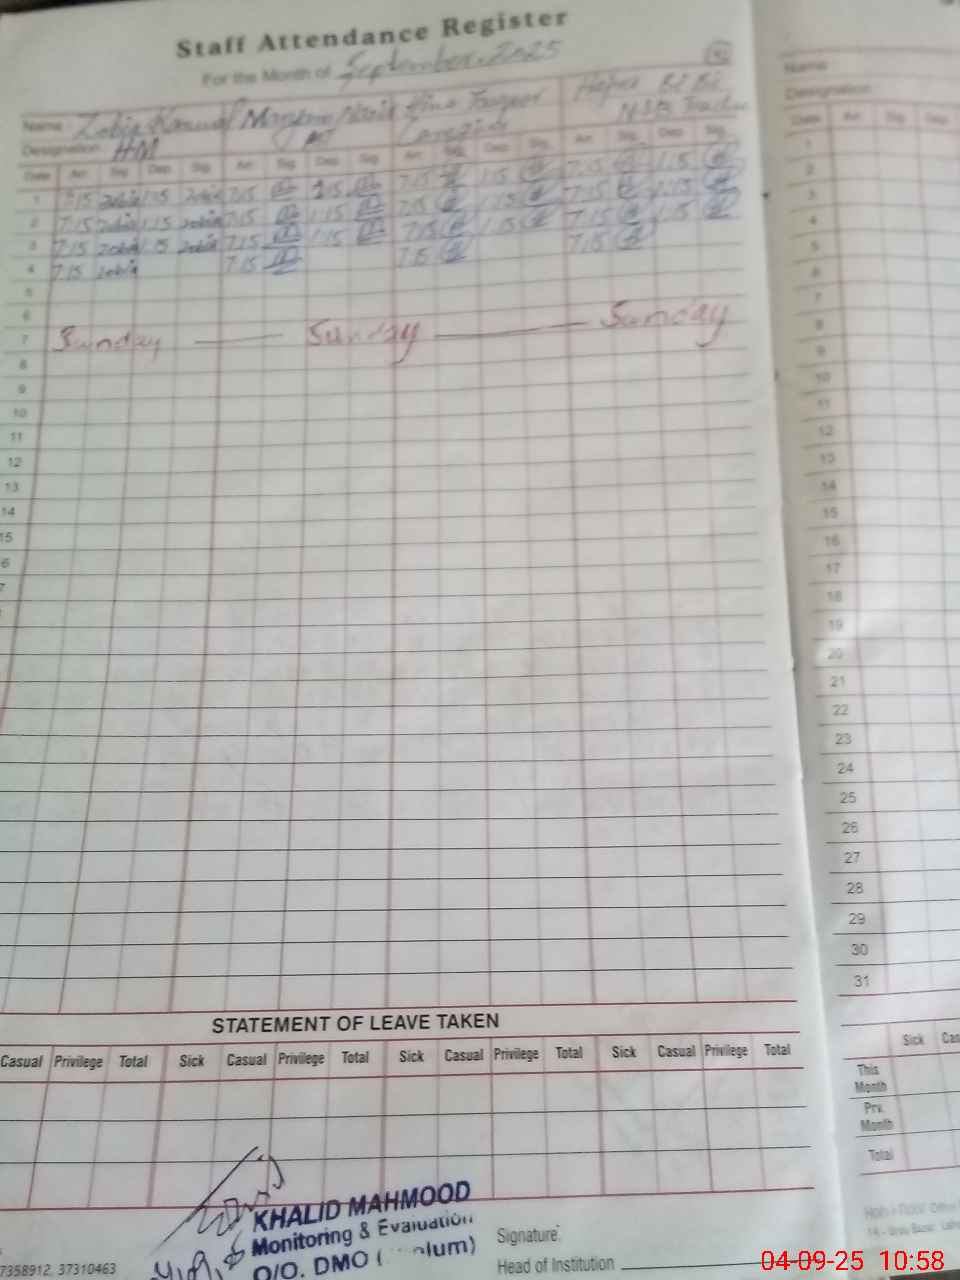 Staff Attendance Register
For the Month of September. 2025
Name Zobia Kanwal Maryam Hina Bi Bi
Designation HM Caregiver NSB Teacher
Date Arr. Sig. Dep. Sig. Arr. Sig. Dep. Sig. Arr. Sig. Dep. Sig. Arr. Sig. Dep. Sig.
1 7:15 Zobia 1:15 Zobia 7:15 1:15 7:15 1:15 7:15 1:15
2 7:15 Zobia 1:15 Zobia 7:15 1:15 7:15 1:15 7:15 1:15
3 7:15 Zobia 1:15 Zobia 7:15 1:15 7:15 1:15 7:15 1:15
4 7:15 Zobia 7:15 7:15 7:15
5
6
7 Sunday Sunday Sunday
8
9
10
11
12
13
14
15
6
7
STATEMENT OF LEAVE TAKEN
Casual Privilege Total Sick Casual Privilege Total Sick Casual Privilege Total Sick Casual Privilege Total
KHALID MAHMOOD
Monitoring & Evaluation
O/O. DMO ( lum)
Signature:
Head of Institution
7358912, 37310463
Name
Designation
Date Arr. Sig. Dep.
1
2
3
4
5
6
7
8
9
10
11
12
13
14
15
16
17
18
19
20
21
22
23
24
25
26
27
28
29
30
31
Sick Cas
This
Month
Prv.
Month
Total
04-09-25 10:58